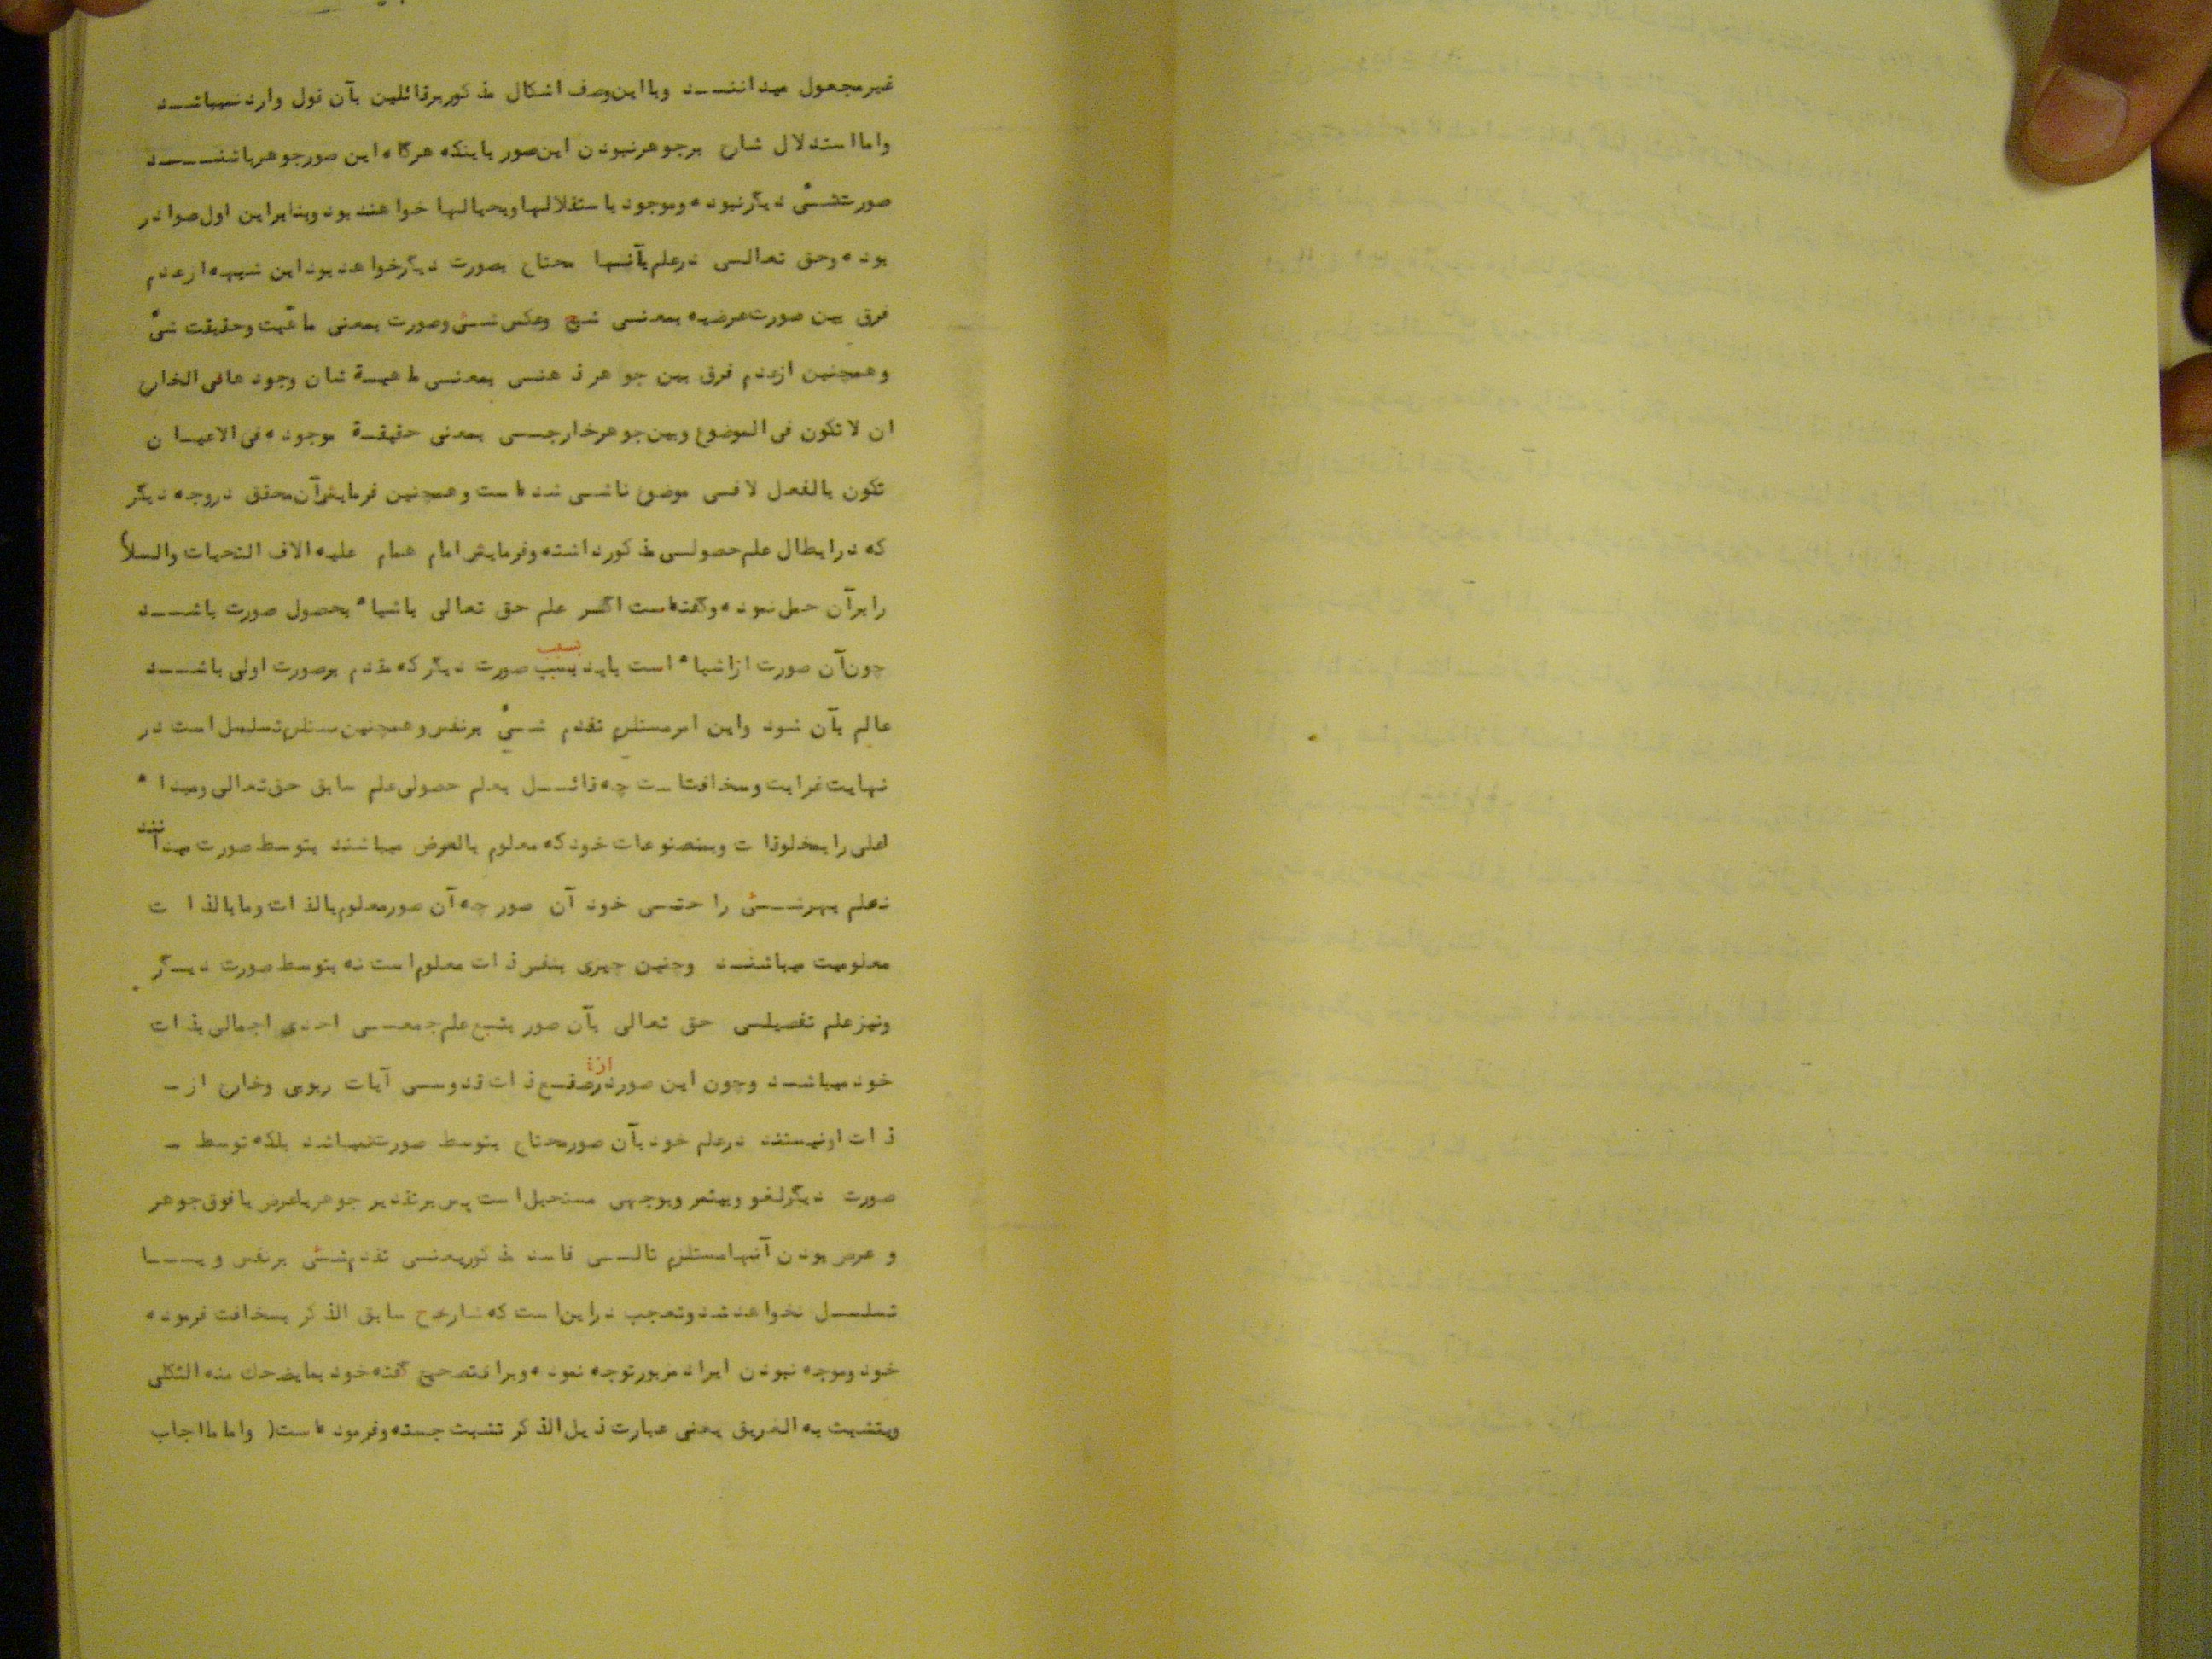 غیرمجعول میدانند وبااین‌وصف اشکال مذکوربرقائلین بآن قول واردنمیباشد
واما استدلال شارح برجوهرنبودن این‌صور باینکه هرگاه این صورجوهرباشند
صورتشیء دیگرنبوده وموجود باستقلالها وبحیالها خواهندبود وبنابراین اول‌صوادر
بوده وحق تعالی درعلم‌بآنها محتاج بصورت دیگرخواهدبود این شبهه ازعدم
فرق بین صورت‌عرضیه بمعنی شبح وعکس شیء وصورت بمعنی ماهیت وحقیقت شیء
وهمچنین ازعدم فرق بین جوهر ذهنی بمعنی ماهیة شان وجودهافی الخارج
ان لاتکون فی الموضوع وبین‌جوهرخارجی بمعنی حقیقة موجوده فی الاعیان
تکون بالفعل لافی موضوع ناشی شده‌است وهمچنین فرمایش‌آن‌محقق دروجه دیگر
که درابطال علم‌حصولی مذکورداشته وفرمایش امام همام علیه الاف التحیات والسلام
رابرآن حمل‌نموده وگفته‌است اگر علم حق تعالی باشیاء بحصول صورت باشد
چون‌آن صورت ازاشیاء است باید بسبب صورت دیگر که مقدم برصورت اولی باشد
عالم بآن شود واین امرمستلزم تقدم شیء برنفس وهمچنین‌مستلزم‌تسلسل است در
نهایت‌غرابت وسخافت‌است چه قائل بعلم حصولی‌علم سابق حق‌تعالی ومبداء
اعلی رابمخلوقات وبمصنوعات خودکه معلوم بالعرض میباشند بتوسط صورت میدانند
نه‌علم بهرشیء را حتی خود آن صور چه‌آن صورمعلوم‌بالذات ومابالذات
معلومیت میباشند وچنین چیزی بنفس‌ذات معلوم‌است نه بتوسط صورت دیگر
ونیزعلم تفصیلی حق تعالی بآن صور بتبع‌علم‌جمعی احدی اجمالی بذات
خودمیباشد وچون این صوردرصقع ذات قدوسی آیات ربوبی وخارج از -
ذات اونیستند درعلم خودبآن صورمحتاج بتوسط صورت‌نمیباشد بلکه توسط -
صورت دیگرلغو وبیثمر وبوجهی مستحیل‌است پس‌برتقدیر جوهریاعرض یافوق‌جوهر
و عرض‌بودن آنهامستلزم تالی فاسد مذکوریعنی تقدم‌شیء برنفس ویا
تسلسل نخواهدشد وتعجب دراین‌است که شارح سابق الذکر بسخافت فرموده
خود وموجه نبودن ایراد مزبورتوجه نموده وبرای‌تصحیح گفته‌خود بمایضحك منه الثکلی
ویتشبث به الغریق یعنی عبارت ذیل الذکر تشبث جسته وفرموده‌است( واما مااجاب